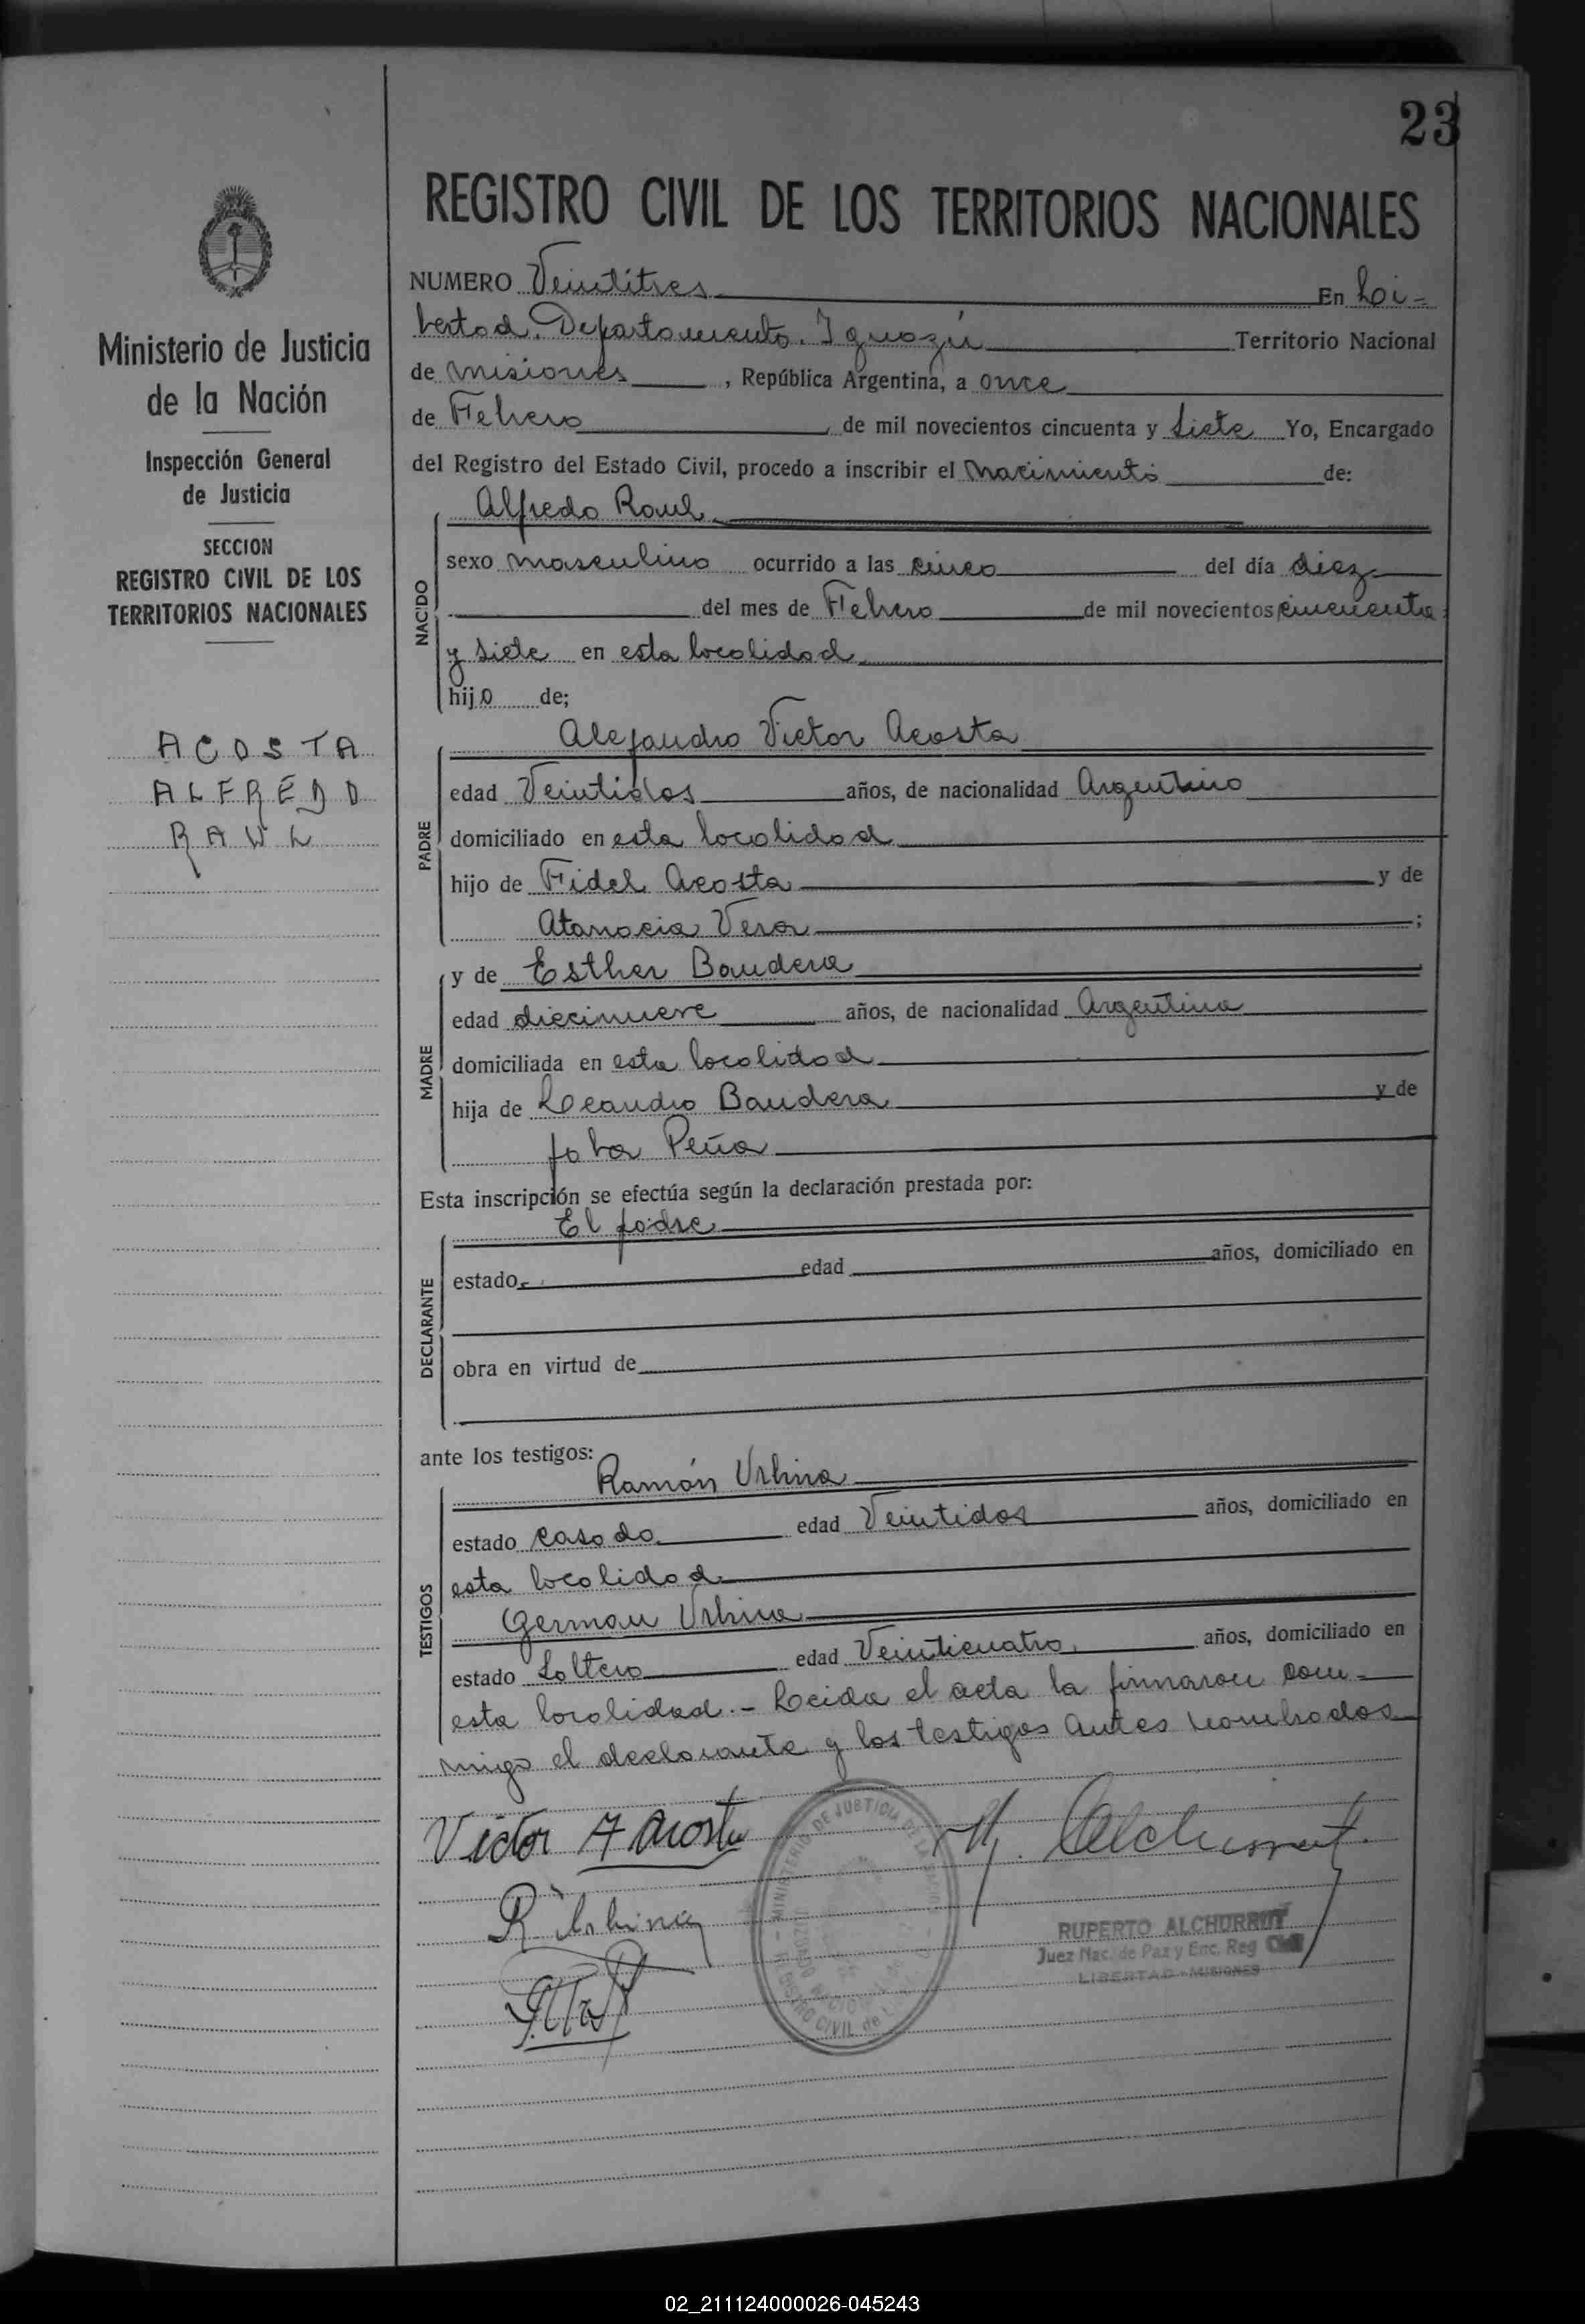 23
Ministerio de Justicia
de la Nación
Inspección General
de Justicia
SECCION
REGISTRO CIVIL DE LOS
TERRITORIOS NACIONALES
ACOSTA
ALFREDO
RAUL
REGISTRO CIVIL DE LOS TERRITORIOS NACIONALES
NUMERO Veintitres En Li-
bertad. Departamento. Iguazú Territorio Nacional
de misiones, República Argentina, a once
de Febrero de mil novecientos cincuenta y siete Yo, Encargado
del Registro del Estado Civil, procedo a inscribir el Nacimiento de:
NACIDO
Alfredo Raul
sexo masculino ocurrido a las cinco del día diez
del mes de Febrero de mil novecientos cincuenta
y siete en esta localidad
hijo de;
PADRE
Alejandro Victor Acosta
edad Veintidos años, de nacionalidad Argentino
domiciliado en esta localidad
hijo de Fidel Acosta y de
Atanacia Vera ;
MADRE
y de Esther Bandera
edad diecinueve años, de nacionalidad Argentina
domiciliada en esta localidad
hija de Leandro Bandera y de
Peña
Esta inscripción se efectúa según la declaración prestada por:
DECLARANTE
El padre
estado edad años, domiciliado en
obra en virtud de
ante los testigos:
TESTIGOS
Ramón Urbina
estado casado edad Veintidos años, domiciliado en
esta localidad
German Urbina
estado Soltero edad Veinticuatro años, domiciliado en
esta localidad.- Leida el acta la firmaron con-
migo el declarante y los testigos antes nombrados
Victor A Acosta
R Urbina
Alchurrut.
MINISTERIO DE JUSTICIA DE LA
REGISTRO CIVIL de
RUPERTO ALCHURRUT
Juez Nac. de Paz y Enc. Reg Civil
LIBERTAD - MISIONES
02_211124000026-045243